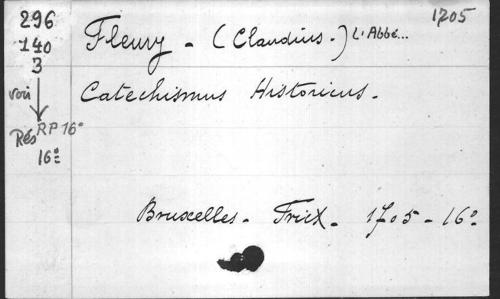 1705
296
140
3
voir
Rés RP 16°
16°
Fleury - (Claudius.) L'Abbé...
Catechismus Historicus.
Bruxelles - Fricx - 1705 - 16°